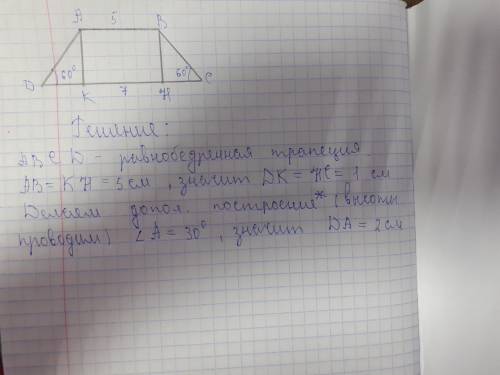 A 5 B
D 60° 60° C
K 7 H
Решение:
ABCD - равнобедренная трапеция.
AB = KH = 5 см, значит DK = HC = 1 см
Делаем допол. построение* (высоты
проводим) ∠A = 30°, значит DA = 2 см